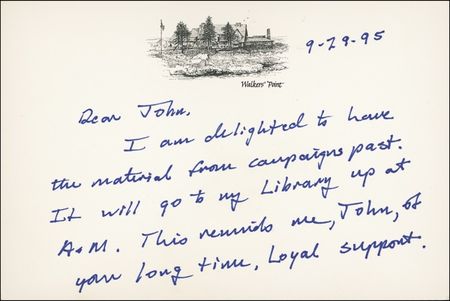 Walkers' Point
9-29-95
Dear John,
I am delighted to have
the material from campaigns past.
It will go to my Library up at
A&M. This reminds me, John, of
your long time, Loyal support.